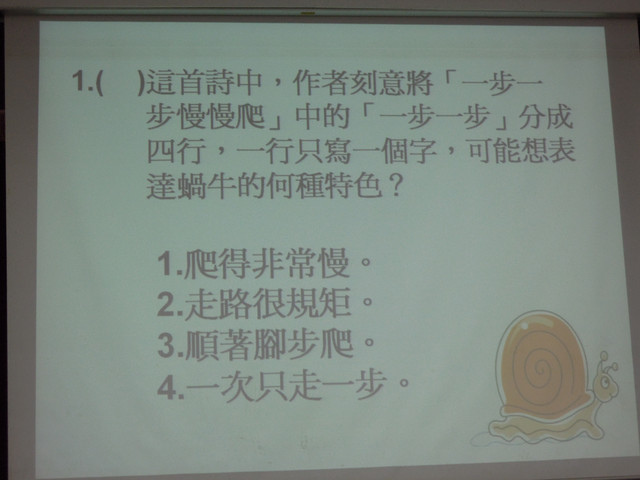 1.( )這首詩中，作者刻意將「一步一
步慢慢爬」中的「一步一步」分成
四行，一行只寫一個字，可能想表
達蝸牛的何種特色？
1.爬得非常慢。
2.走路很規矩。
3.順著腳步爬。
4.一次只走一步。